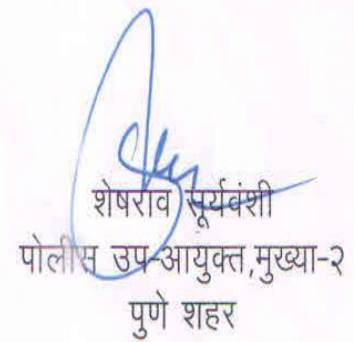 शेषराव सूर्यवंशी
पोलीस उप-आयुक्त,मुख्या-२
पुणे शहर